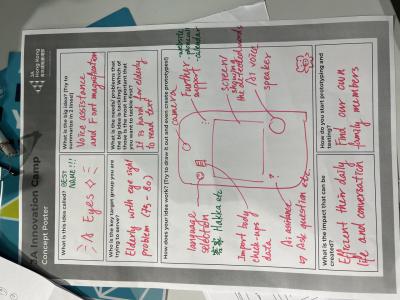 JA Innovation Camp
Concept Poster
JA
Hong Kong
What is this idea called?
BEST
NAME!!!
AI Eyes
What is the big idea? (Try to
summarize in 2 lines)
Voice assistance
and Font magnification
What is the key target group you are
trying to serve?
Elderly with eye sight
problem (75-80)
What is the needs/ problems that
the big idea is tackling? Which of
those is the most important that
you want to tackle first?
It is hard for elderly
to read text
How does your idea work? (Try to draw it out and even create prototypes!)
camera
Further
support
- website
- physical
- calendar
screen
showing
the detected words
Ai voice
speaker
language
selection
Hakka etc
Import body
check-ups
data
Ai assistance
Ask question etc.
?
What is the impact that can be
created?
Efficient their daily
life and conversation
How do you start prototyping and
testing?
Find our own
family members